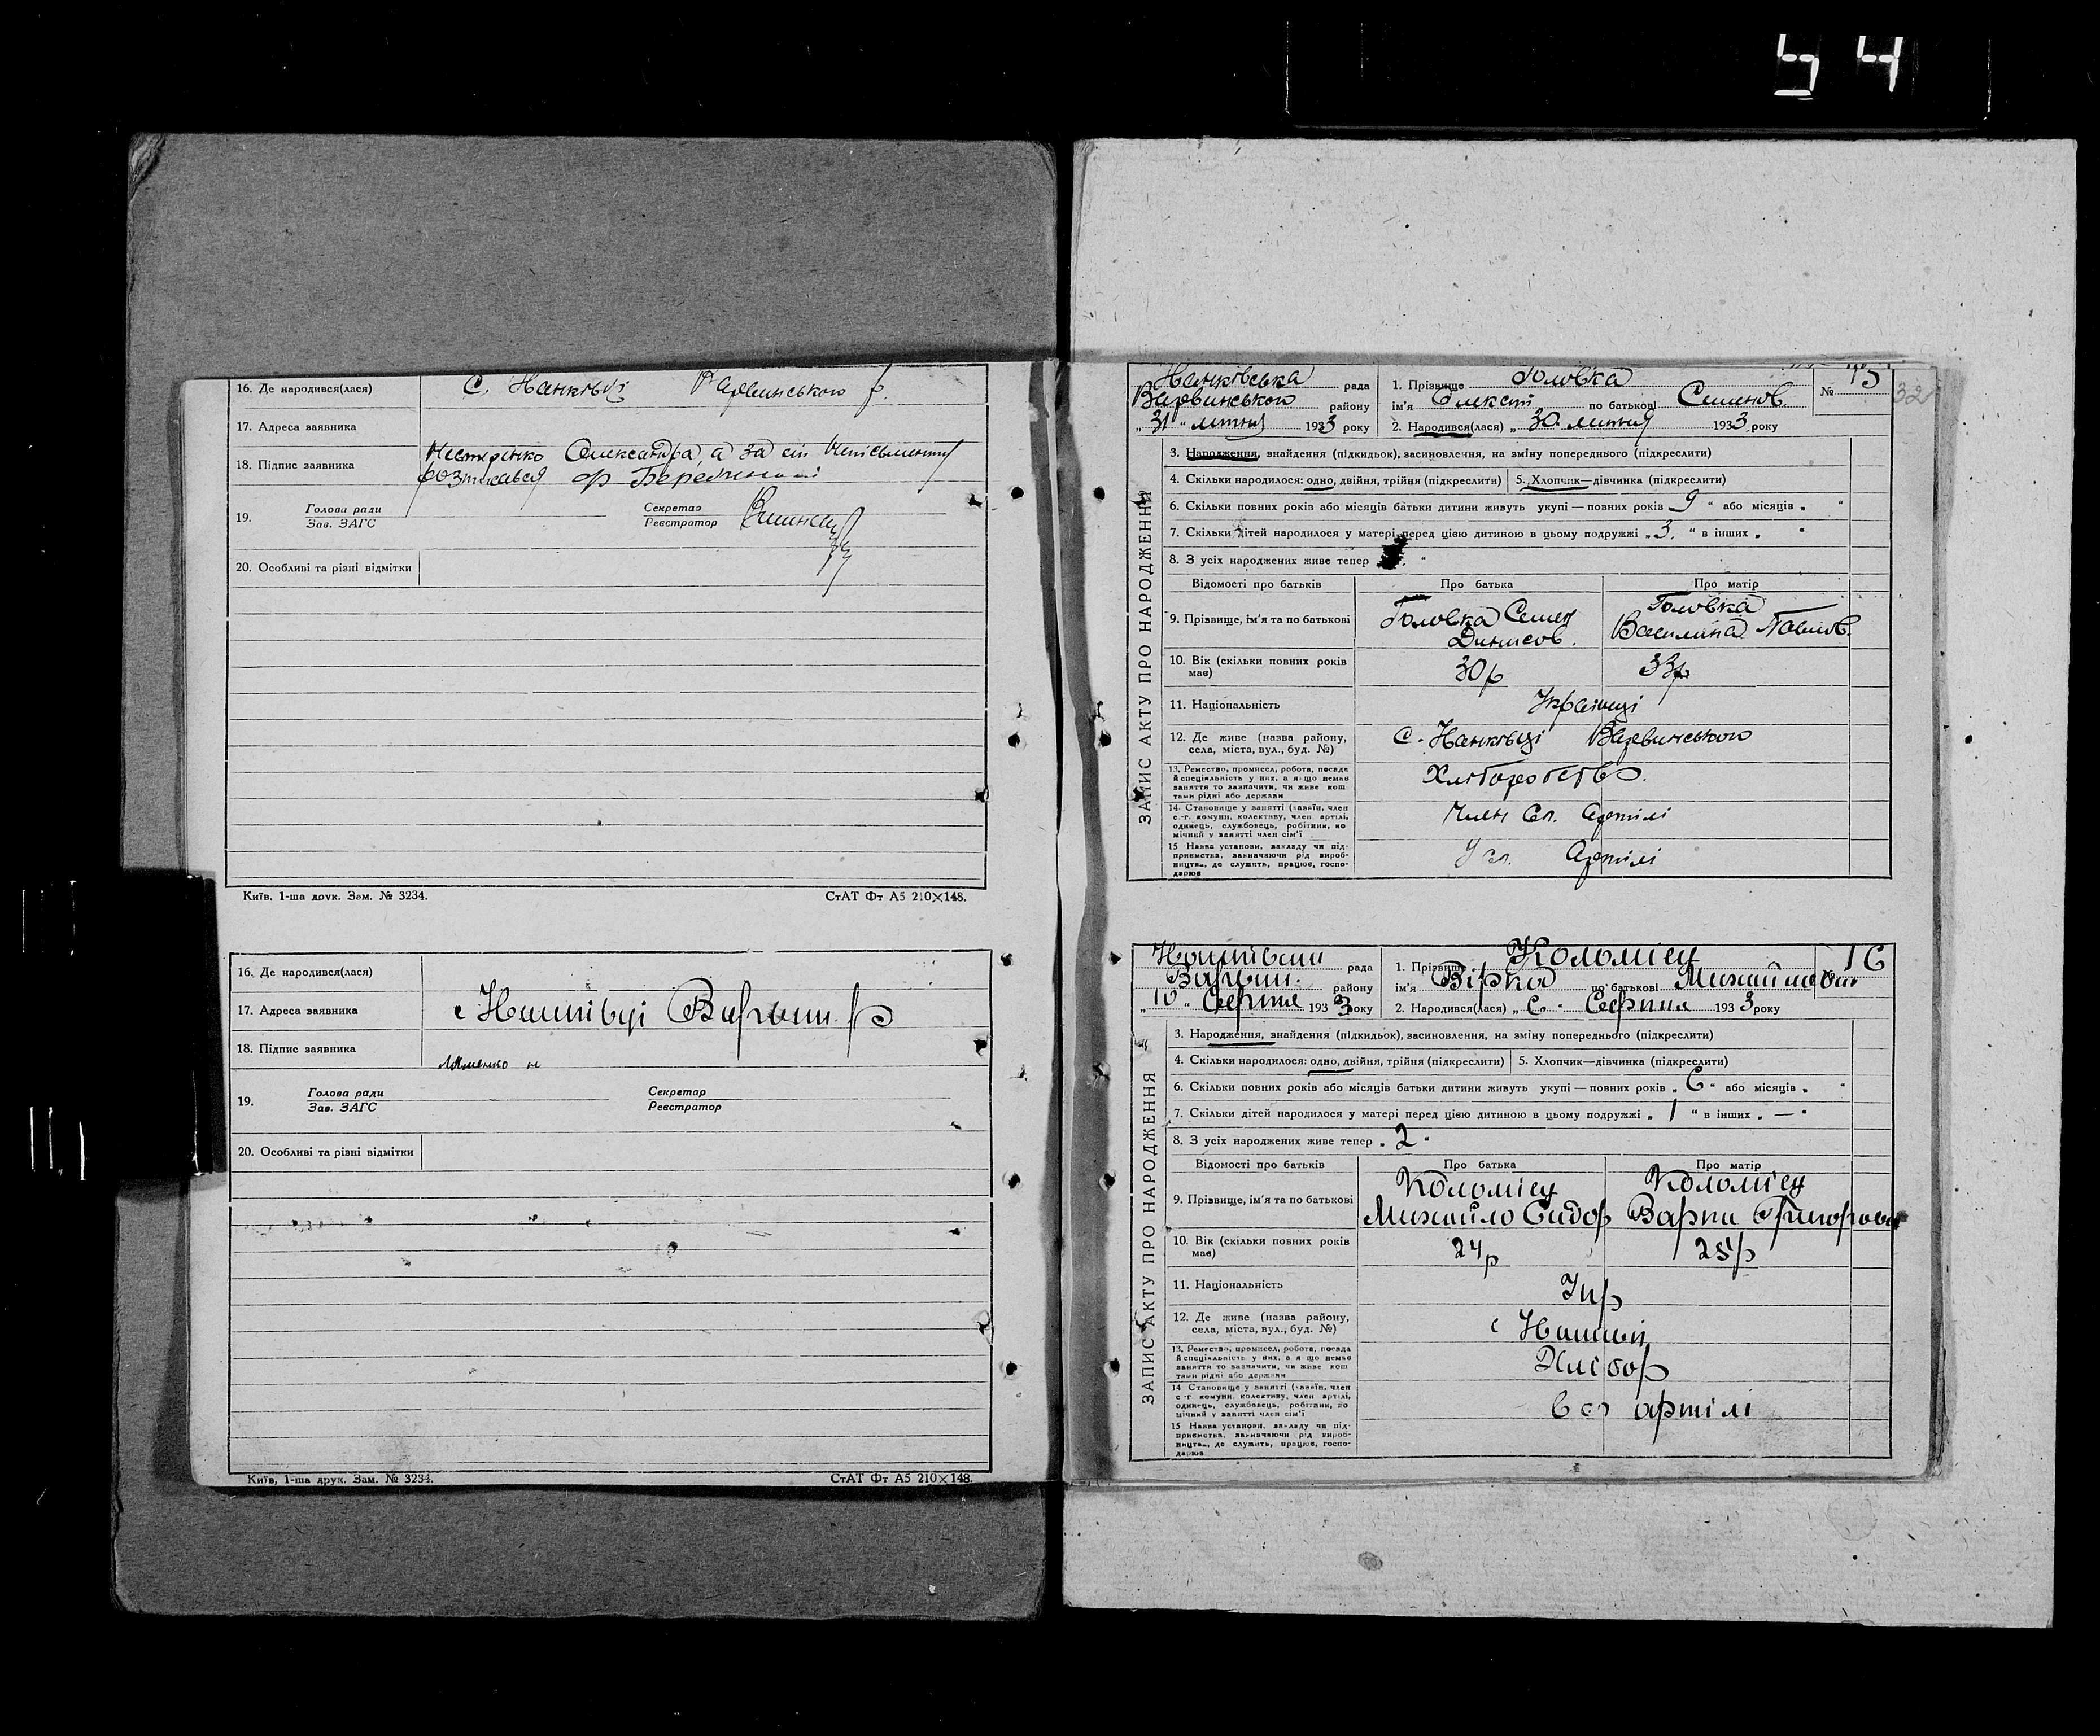 54
16. Де народився(лася) С. Нанківці Варвинського р.
17. Адреса заявника
18. Підпис заявника Нестеренко Олександра, а за сіп Неписьменну
розписався
19. Голова ради Секретар
Зав. ЗАГС Реєстратор
20. Особливі та різні відмітки
Київ, 1-ша друк. Зам. № 3234. СтАТ Фт А5 210×148.
16. Де народився(лася)
17. Адреса заявника с Нанківці Варвин р
18. Підпис заявника
19. Голова ради Секретар
Зав. ЗАГС Реєстратор
20. Особливі та різні відмітки
Київ, 1-ша друк. Зам. № 3234. СтАТ Фт А5 210×148.
ЗАПИС АКТУ ПРО НАРОДЖЕННЯ
Нанківська рада
Варвинського району
„31" липня 1933 року
1. Прізвище Головка
№ 15
32
ім'я Олексій по батькові Семенов.
2. Народився(лася) „30 липня 1933 року
3. Народження, знайдення (підкидьок), засиновлення, на зміну попереднього (підкреслити)
4. Скільки народилося: одно, двійня, трійня (підкреслити) 5. Хлопчик—дівчинка (підкреслити)
6. Скільки повних років або місяців батьки дитини живуть укупі — повних років 9 " або місяців „ "
7. Скільки дітей народилося у матері перед цією дитиною в цьому подружжі „3. " в інших „ "
8. З усіх народжених живе тепер
Відомості про батьків Про батька Про матір
9. Прізвище, ім'я та по батькові Головка Семен Динисов. Головка Василина Павлов.
10. Вік (скільки повних років має) 30р 33р
11. Національність Українці
12. Де живе (назва району, села, міста, вул., буд. №) С. Нанківці Варвинського
13. Ремество, промисел, робота, посада й спеціяльність у них, а якщо немає заняття то зазначити, чи живе коштами рідні або держави Хліборобство.
14. Становище у занятті (хазяїн, член с.-г. комуни, колективу, член артілі, одинець, службовець, робітник, помічний у занятті член сім'ї Член Сл. Артілі
15 Назва установи, закладу чи підприємства, зазначаючи рід виробництва, де служить, працює, господарює У сл. Артілі
ЗАПИС АКТУ ПРО НАРОДЖЕННЯ
рада
Варвин. району
„10" Серпня 1933 року
1. Прізвище Коломієц
№ 16
ім'я Вірка по батькові
2. Народився(лася) „6. Серпня 1933 року
3. Народження, знайдення (підкидьок), засиновлення, на зміну попереднього (підкреслити)
4. Скільки народилося: одно, двійня, трійня (підкреслити) 5. Хлопчик—дівчинка (підкреслити)
6. Скільки повних років або місяців батьки дитини живуть укупі — повних років „6" або місяців „ "
7. Скільки дітей народилося у матері перед цією дитиною в цьому подружжі „1 " в інших „—"
8. З усіх народжених живе тепер „2"
Відомості про батьків Про батька Про матір
9. Прізвище, ім'я та по батькові Коломієц Михайло Сидор Коломієц Варка Григоровна
10. Вік (скільки повних років має) 24р 25р
11. Національність Укр
12. Де живе (назва району, села, міста, вул., буд. №) с
13. Ремество, промисел, робота, посада й спеціяльність у них, а якщо немає заняття то зазначити, чи живе коштами рідні або держави Хлібор
14 Становище у занятті (хазяїн, член с.-г. комуни, колективу, член артілі, одинець, службовець, робітник, помічний у занятті член сім'ї артілі
15 Назва установи, закладу чи підприємства, зазначаючи рід виробництва, де служить, працює, господарює